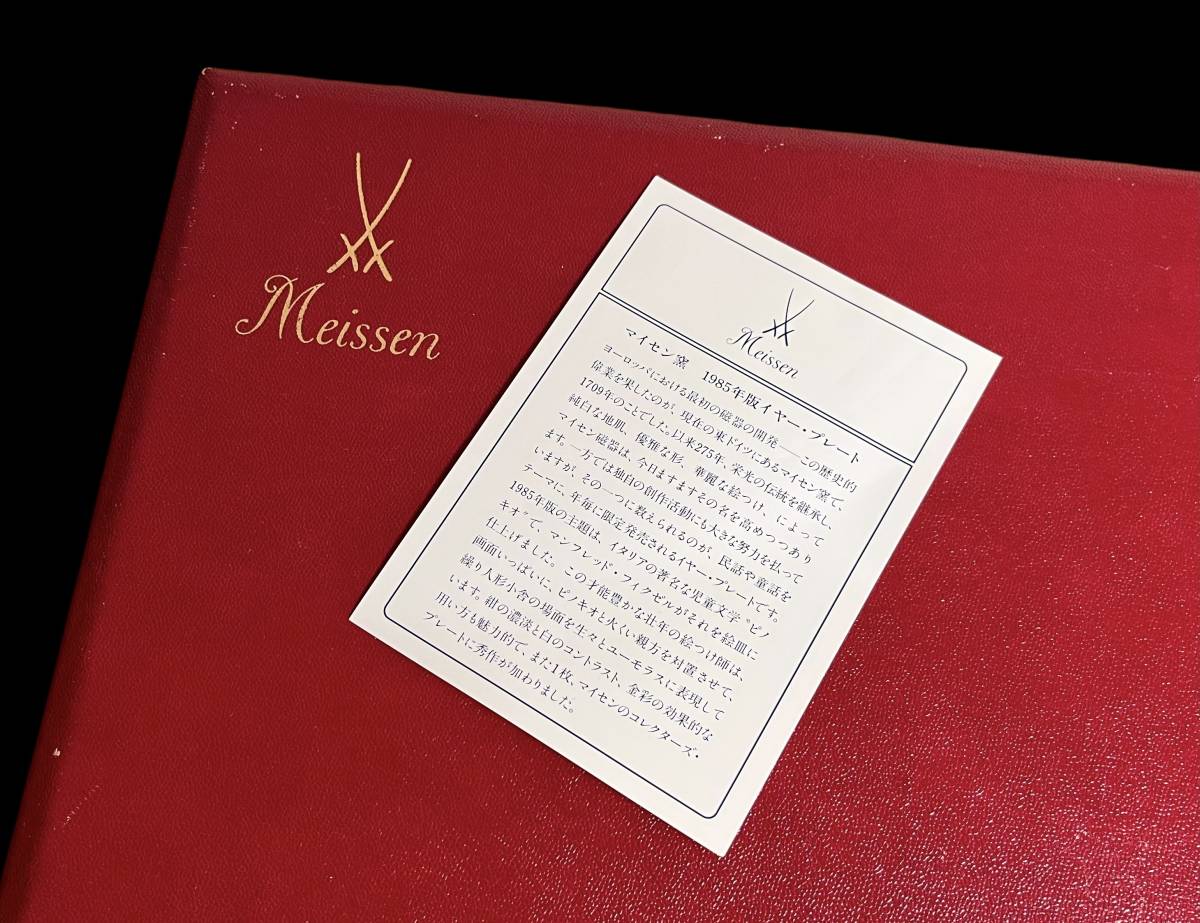 Meissen
Meissen
マイセン窯 1985年版イヤー・プレート
ヨーロッパにおける最初の磁器の開発――この歴史的
偉業を果したのが、現在の東ドイツにあるマイセン窯で、
1709年のことでした。以来275年、栄光の伝統を継承し、
純白な地肌、優雅な形、華麗な絵つけ、によって
マイセン磁器は、今日ますますその名を高めつつあり
ます。一方では独自の創作活動にも大きな努力を払って
いますが、その一つに数えられるのが、民話や童話を
テーマに、年毎に限定発売されるイヤー・プレートです。
1985年版の主題は、イタリアの著名な児童文学“ピノ
キオ”で、マンフレッド・フィクゼルがそれを絵皿に
仕上げました。この才能豊かな壮年の絵つけ師は、
画面いっぱいに、ピノキオと火くい親方を対置させて、
繰り人形小舎の場面を生々とユーモラスに表現して
います。紺の濃淡と白のコントラスト、金彩の効果的な
用い方も魅力的で、また1枚、マイセンのコレクターズ・
プレートに秀作が加わりました。